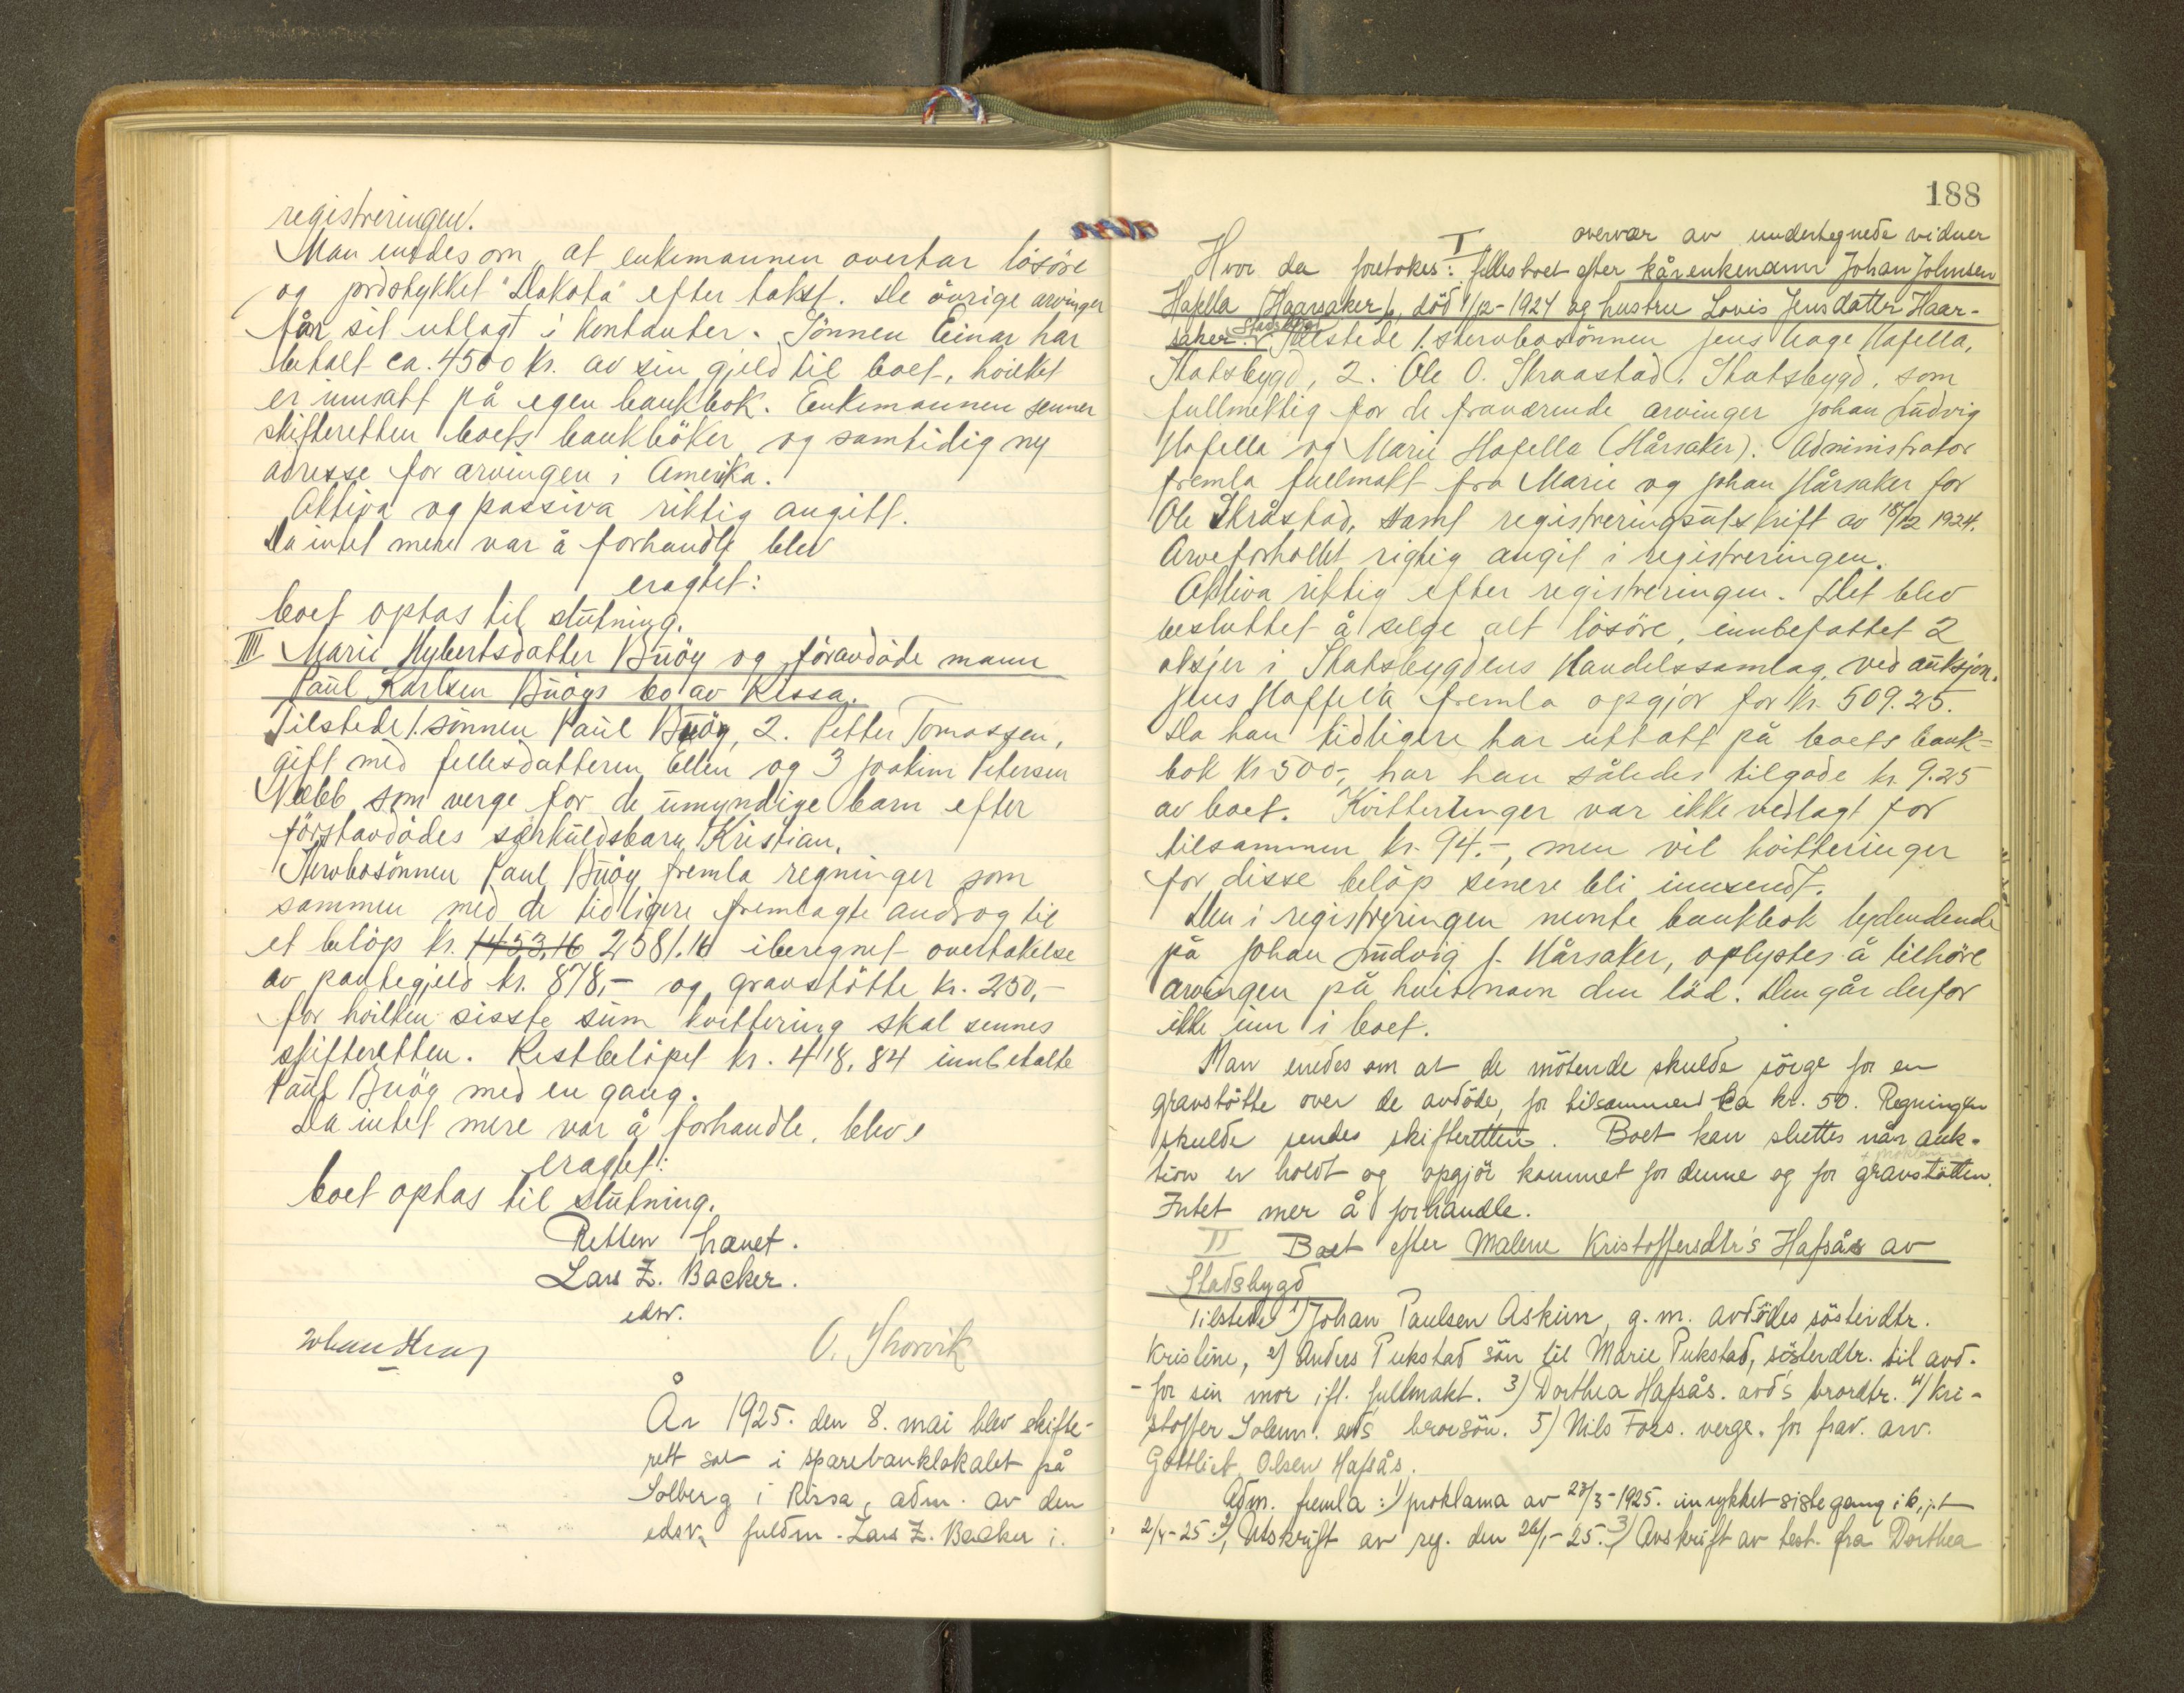 registreringen.
Man enedes om at enkemannen overtar lösöre
og jordstykket "Dakota" efter takst. De övrige arvinger
får sit utlagt i kontanter. Sönnen Einar har
betalt ca. 4500 kr. av sin gjeld til boet, hvilket
er innsatt på egen bankbok. Enkemannen senner
skifteretten boets bankböker og samtidig ny
adresse for arvingen i Amerika.
Aktiva og passiva riktig angitt.
Da intet mere var å forhandle blev
eragtet:
boet optas til slutning.
III Marie Hybertsdatter Buöy og föravdöde mann
Paul Karlsen Buöys bo av Rissa.
Tilstede 1. sönnen Paul Buöy, 2. Petter Tomassen,
gift med fellesdatteren Ellen og 3 Joakim Petersen
Næbb som verge for de umyndige barn efter
förstavdödes særkuldsbarn Kristian.
Stervbosönnen Paul Buöy fremla regninger som
sammen med de tidligere fremlagte androg til
et belöp kr. 1453.16 2581.16 iberegnet overtakelse
av pantegjeld kr. 878,- og gravstötte kr. 250,-
for hvilken sisste sum kvittering skal sennes
skifteretten. Restbelöpet kr. 418,84 innbetalte
Paul Buöy med en gang.
Da intet mere var å forhandle, blev
eragtet:
boet optas til slutning.
Retten hævet.
Lars Z. Backer.
edsv.
O. Skorvik
År 1925. den 8. mai blev skifte-
rett sat i sparebanklokalet på
Solberg i Rissa, adm. av den
edsv. fuldm. Lars Z. Backer i
188
overvær av undertegnede vidner
I
Hvor da foretokes: fellesboet efter kårenkemann Johan Johnsen
Hafella (Haarsaker), död 1/12-1924 og hustru Lovis Jensdatter Haar-
saker Stadsbygd Tilstede 1. stervbosönnen Jens Hage Hafella,
Statsbygd, 2. Ole O. Skraastad, Statsbygd, som
fullmektig for de fraværende arvinger Johan Ludvig
Hafella og Marie Hafella (Hårsaker). Administrator
fremla fullmakt fra Marie og Johan Hårsaker for
Ole Skråstad, samt registreringsutskrift av 18/12 1924.
Arveforholdet rigtig angit i registreringen.
Aktiva riktig efter registreringen. Det blev
besluttet å selge alt lösöre, innbefattet 2
aksjer i Statsbygdens Handelssamlag, ved auksjon.
Jens Haffella fremla opgjör for kr. 509.25.
Da han tidligere har uttatt på boets bank=
bok kr 500-, har han således tilgode kr. 9.25
av boet. Kvitteringer var ikke vedlagt for
tilsammen kr. 94.-, men vil kvitteringer
for disse belöp senere bli innsendt.
Den i registreringen nevnte bankbok lydendende
på Johan Ludvig J. Hårsaker, oplystes å tilhöre
arvingen på hvis navn den löd. Den går derfor
ikke inn i boet.
Man enedes om at de mötende skulde sörge for en
gravstötte over de avdöde, for tilsammen ca kr. 50. Regningen
skulde sendes skifteretten. Boet kan sluttes når auk-
tion er holdt og opgjör kommet for denne og for + proklama gravstötten.
Intet mer å forhandle.
II Boet efter Malene Kristoffersdtr's Hafsås av
Stadsbygd
Tilstede 1) Johan Paulsen Askim, g. m. avdödes sösterdtr.
Kristine, 2) Anders Pukstad sön til Marie Pukstad, sösterdtr. til avd.
- for sin mor ifl. fullmakt. 3) Dorthea Hafsås. avd's brordtr. 4) Kri-
stoffer Solem. avds brorsön. 5) Nils Foss. verge. for frav. arv.
Gottlieb Olsen Hafsås.
Adm. fremla: 1) proklama av 23/3-1925. inrykket siste gang i
2/4-25. 2) Utskrift av reg. den 26/1-25. 3) Avskrift av test. fra Dorthea